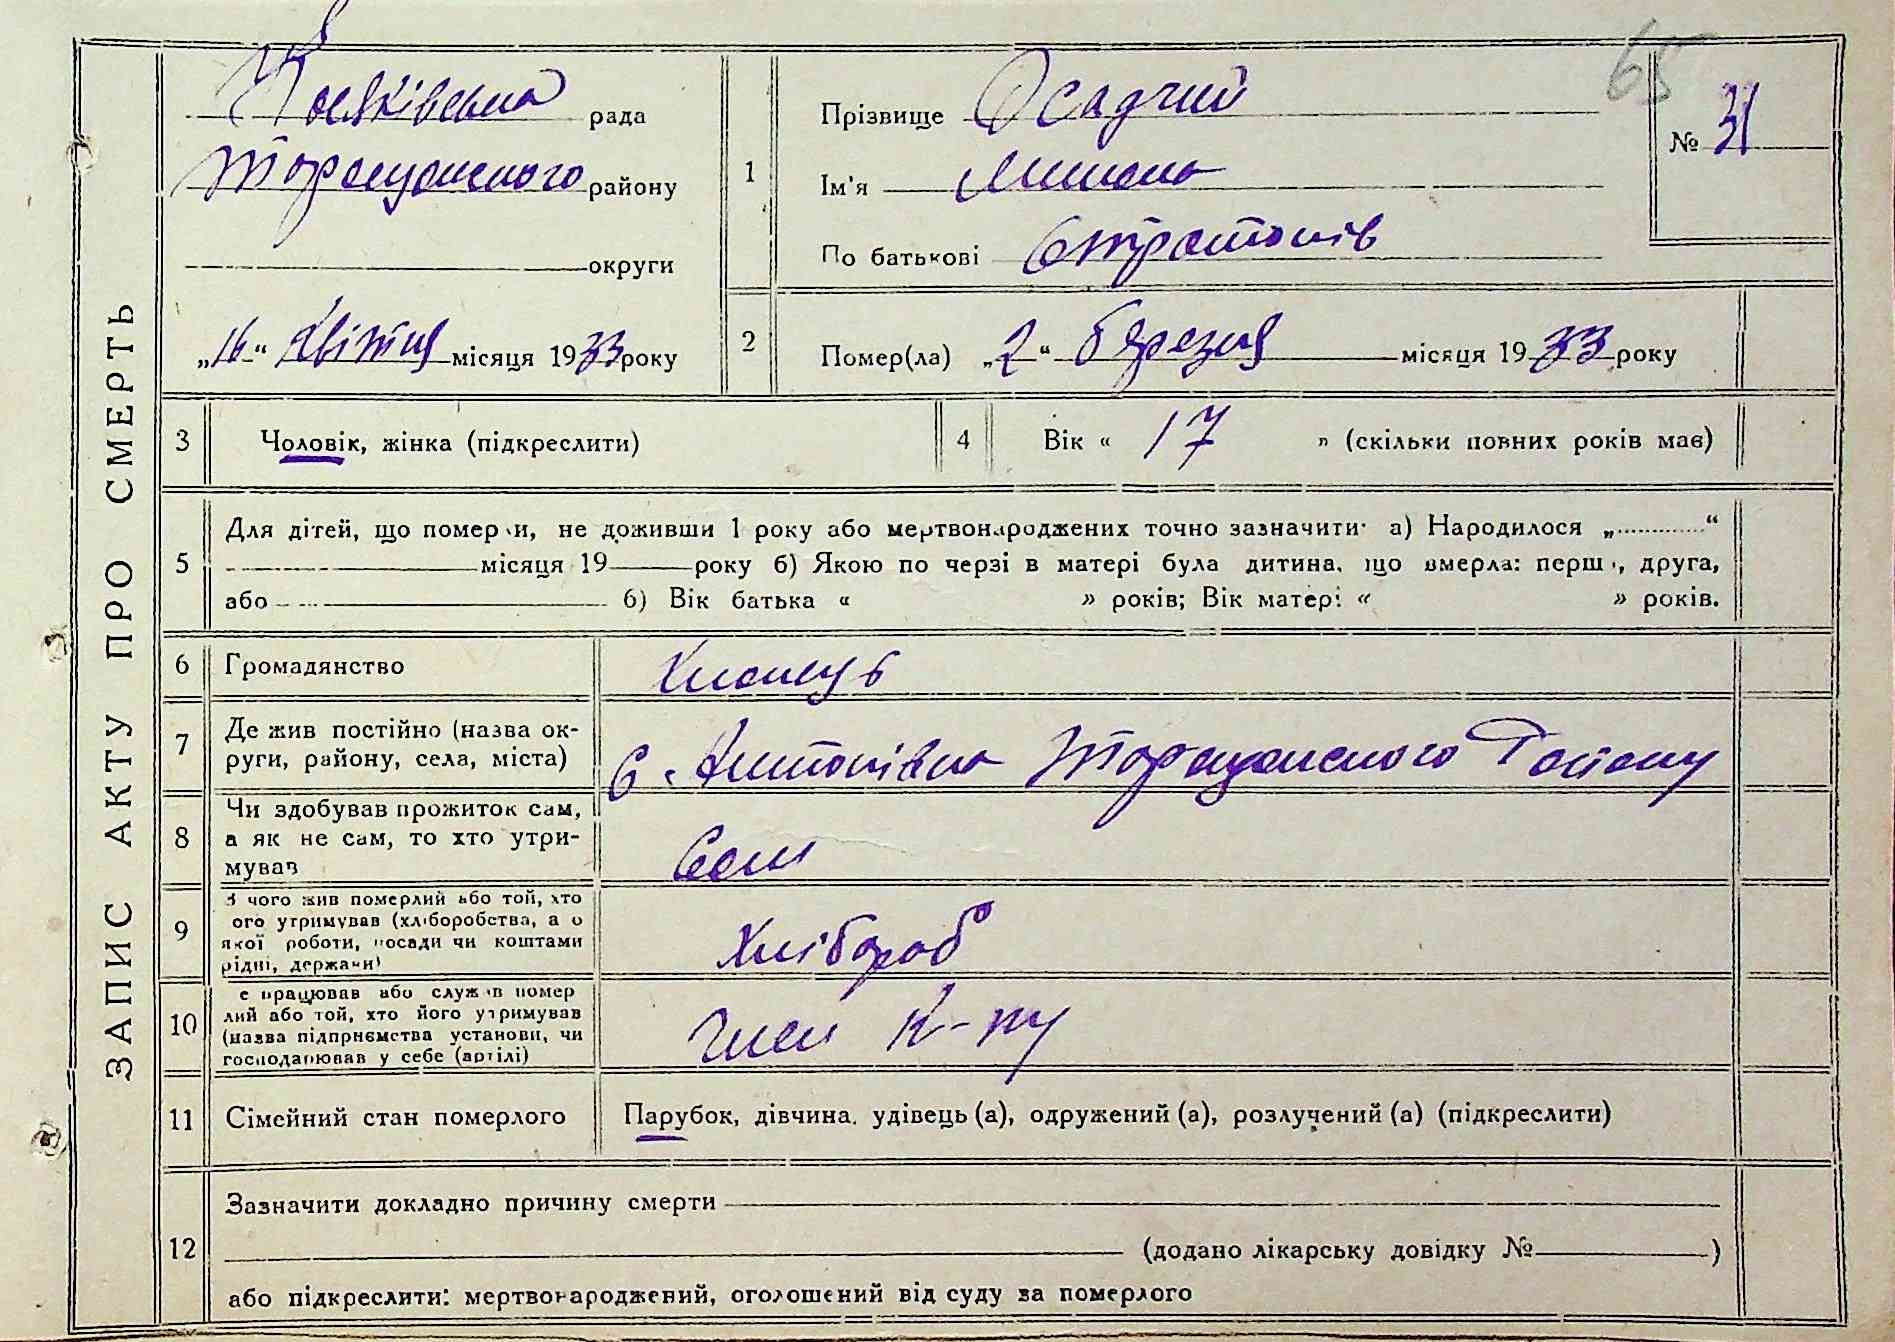 65
рада
Прізвище Осадчий
№ 31
Таращанського району
1
Ім'я
По батькові
округи
„16“ Квітня місяця 1933 року
2
Помер(ла) „2“ березня місяця 1933 року
ЗАПИС АКТУ ПРО СМЕРТЬ
3 Чоловік, жінка (підкреслити)
4 Вік « 17 » (скільки повних років має)
5
Для дітей, що померли, не доживши 1 року або мертвонароджених точно зазначити: а) Народилося „ “
місяця 19 року б) Якою по черзі в матері була дитина, що вмерла: перша, друга,
або 6) Вік батька « » років; Вік матері « » років.
6 Громадянство
7
Де жив постійно (назва ок-
руги, району, села, міста)
с. Антонівка Таращанського Району
8
Чи здобував прожиток сам,
а як не сам, то хто утри-
мував
Сам
9
З чого жив померлий або той, хто
його утримував (хліборобства, а о
якої роботи, посади чи коштами
рідні, держави)
Хлібороб
10
Де працював або служив помер
лий або той, хто його утримував
(назва підприємства установи, чи
господарював у себе (артілі)
Член к-пу
11 Сімейний стан померлого
Парубок, дівчина, удівець (а), одружений (а), розлучений (а) (підкреслити)
12
Зазначити докладно причину смерти
(додано лікарську довідку № )
або підкреслити: мертвонароджений, оголошений від суду за померлого